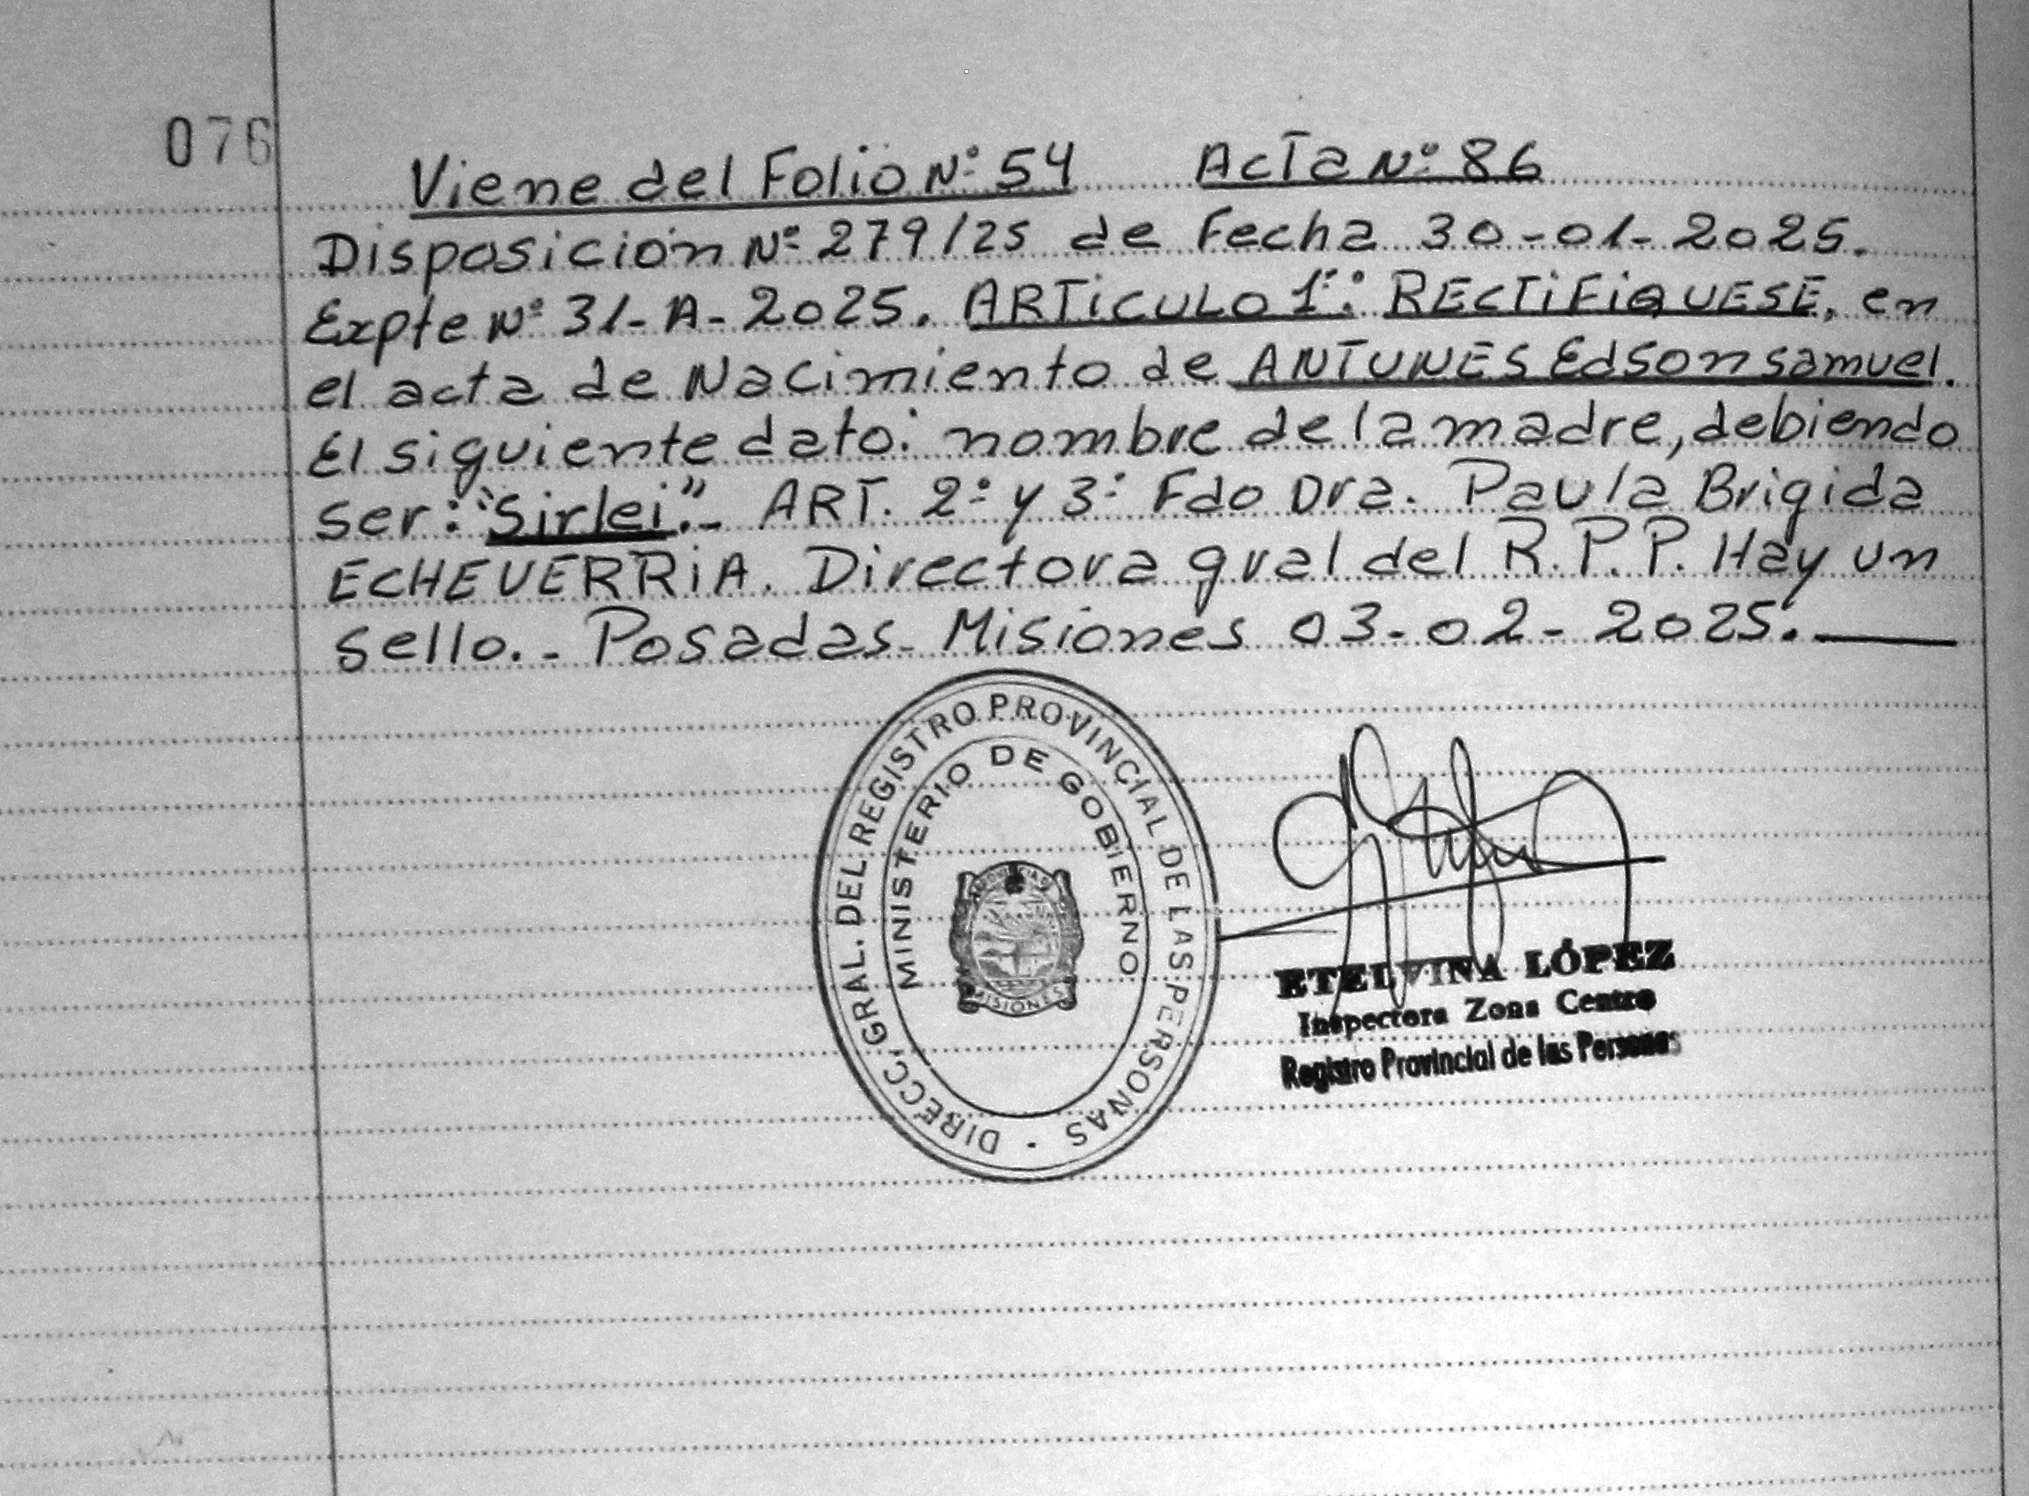 076
Viene del Folio Nº 54 Acta Nº 86
Disposición Nº 279/25 de Fecha 30-01-2025.
Expte Nº 31-A-2025. ARTiCULO 1º: RECTiFiQUESE, en
el acta de Nacimiento de ANTUNES Edson samuel.
El siguiente dato: nombre de la madre, debiendo
ser: "Sirlei".- ART. 2º y 3º Fdo Dra. Paula Brigida
ECHEVERRiA. Directora gral del R.P.P. Hay un
sello.- Posadas- Misiones 03-02-2025.
DIRECC. GRAL. DEL REGISTRO PROVINCIAL DE LAS PERSONAS -
MINISTERIO DE GOBIERNO
MISIONES
ETELVINA LÓPEZ
Inspectora Zona Centro
Registro Provincial de las Personas